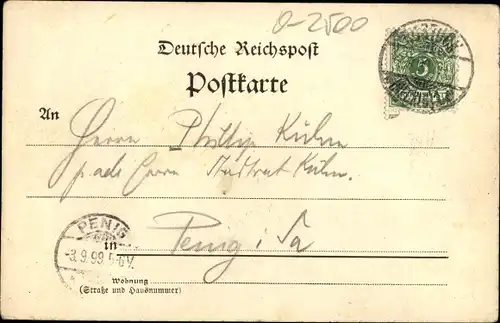 0-2500
Deutsche Reichspost
Postkarte
5
An
Herrn Phillip Kühn
p. ads. Herrn Stadtrat Kühn.
PENIG
3.9.99. 5-6V.
in
Penig i. Sa
Wohnung
(Straße und Hausnummer)